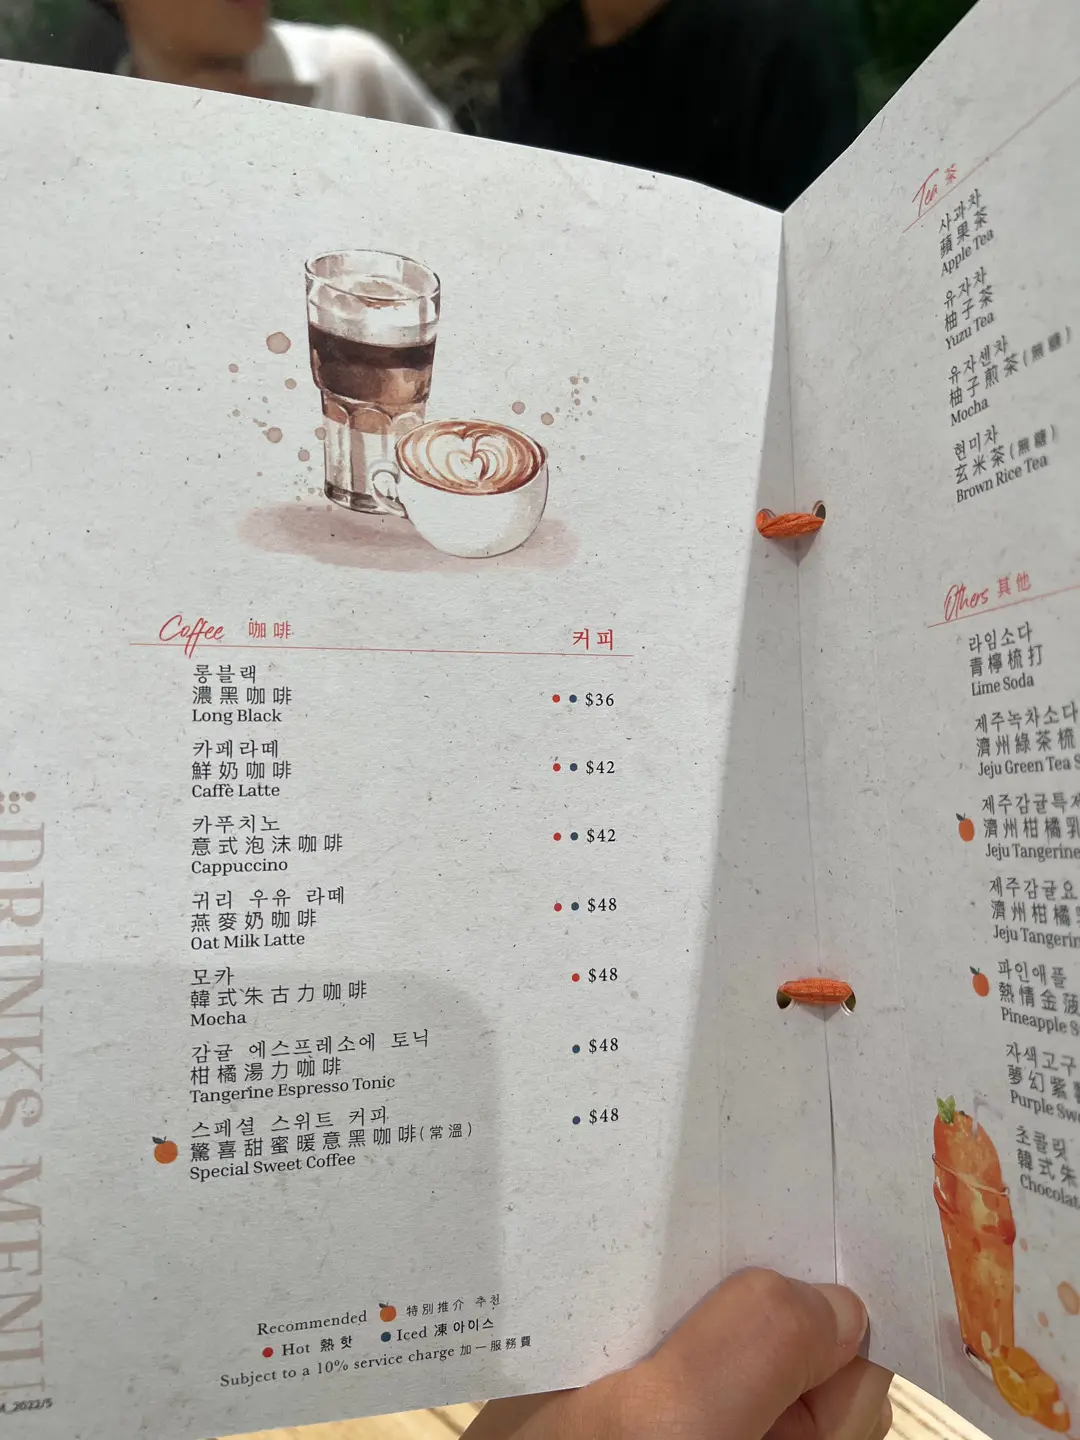 Coffee 咖啡 커피
롱블랙
濃黑咖啡 $36
Long Black
카페라떼
鮮奶咖啡 $42
Caffè Latte
카푸치노
意式泡沫咖啡 $42
Cappuccino
귀리 우유 라떼
燕麥奶咖啡 $48
Oat Milk Latte
모카 $48
韓式朱古力咖啡
Mocha
감귤 에스프레소에 토닉 $48
柑橘湯力咖啡
Tangerine Espresso Tonic
스페셜 스위트 커피 $48
驚喜甜蜜暖意黑咖啡(常溫)
Special Sweet Coffee
Recommended 特別推介 추천
Hot 熱 핫 Iced 凍 아이스
Subject to a 10% service charge 加一服務費
DRINKS MENU
2022/5
Tea 茶
사과차
蘋果茶
Apple Tea
유자차
柚子茶
Yuzu Tea
유자센차
柚子煎茶(無糖)
Mocha
현미차
玄米茶(無糖)
Brown Rice Tea
Others 其他
라임소다
青檸梳打
Lime Soda
제주녹차소다
濟州綠茶梳
Jeju Green Tea S
제주감귤특제
濟州柑橘乳
Jeju Tangerine
제주감귤요
濟州柑橘
Jeju Tangerin
파인애플
熱情金菠
Pineapple S
자색고구
夢幻紫
Purple Swe
초콜릿
韓式朱
Chocolat